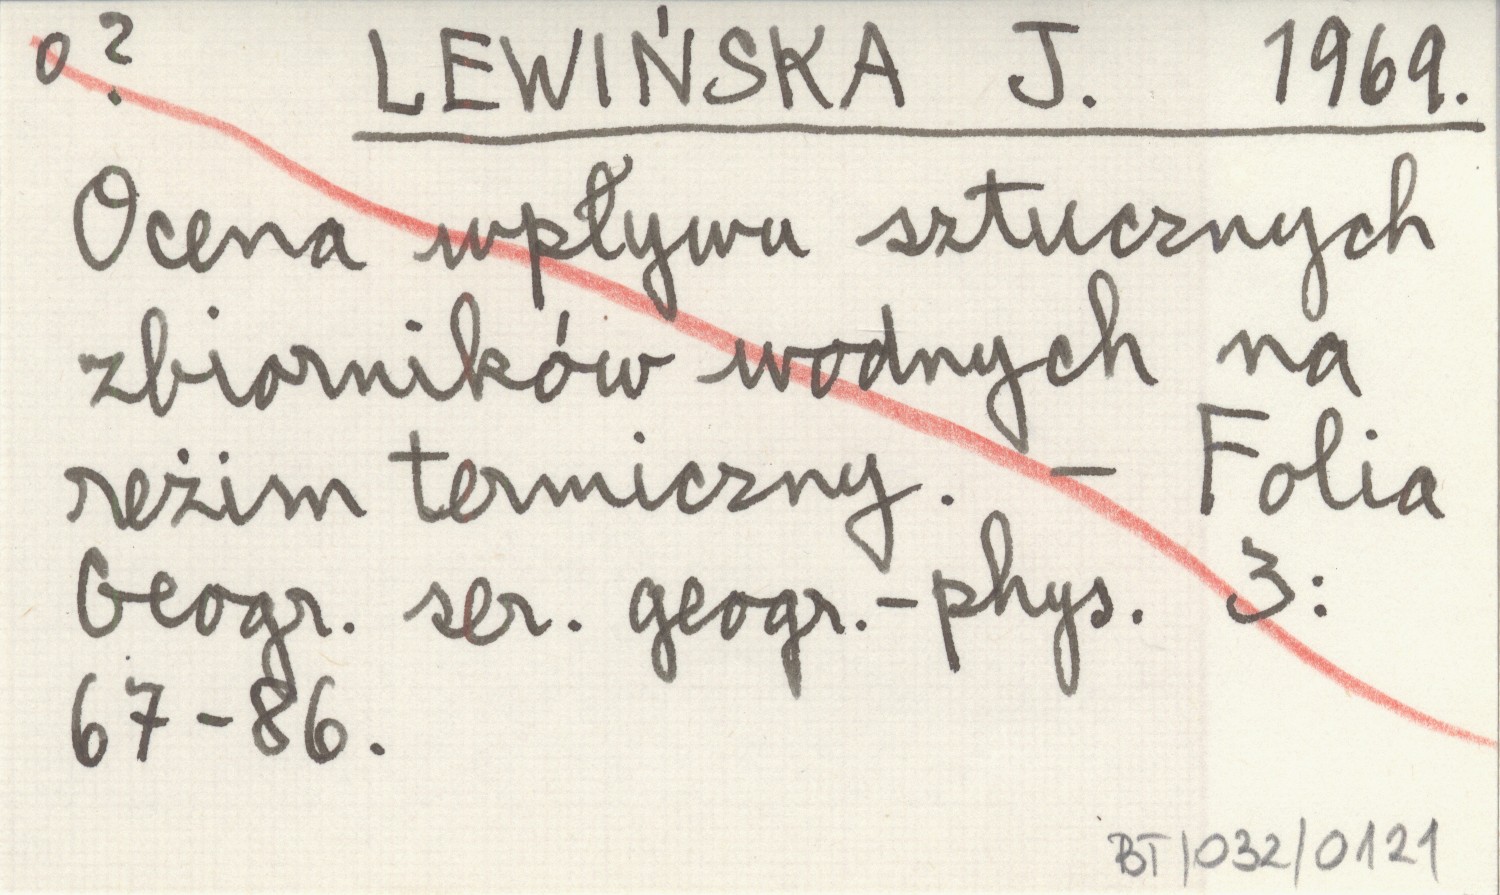 o ?
LEWIŃSKA J. 1969.
Ocena wpływu sztucznych
zbiorników wodnych na
reżim termiczny. – Folia
Geogr. ser. geogr.-phys. 3:
67-86.
BT/032/0121